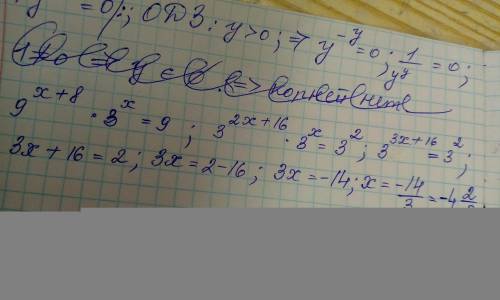 = 0; ОДЗ: y > 0; ⇒ y^{-y} = 0; 1/y^y = 0;
9^{x+8} · 3^x = 9; 3^{2x+16} · 3^x = 3^2; 3^{3x+16} = 3^2;
3x + 16 = 2; 3x = 2 - 16; 3x = -14; x = -14/3 = -4 2/3